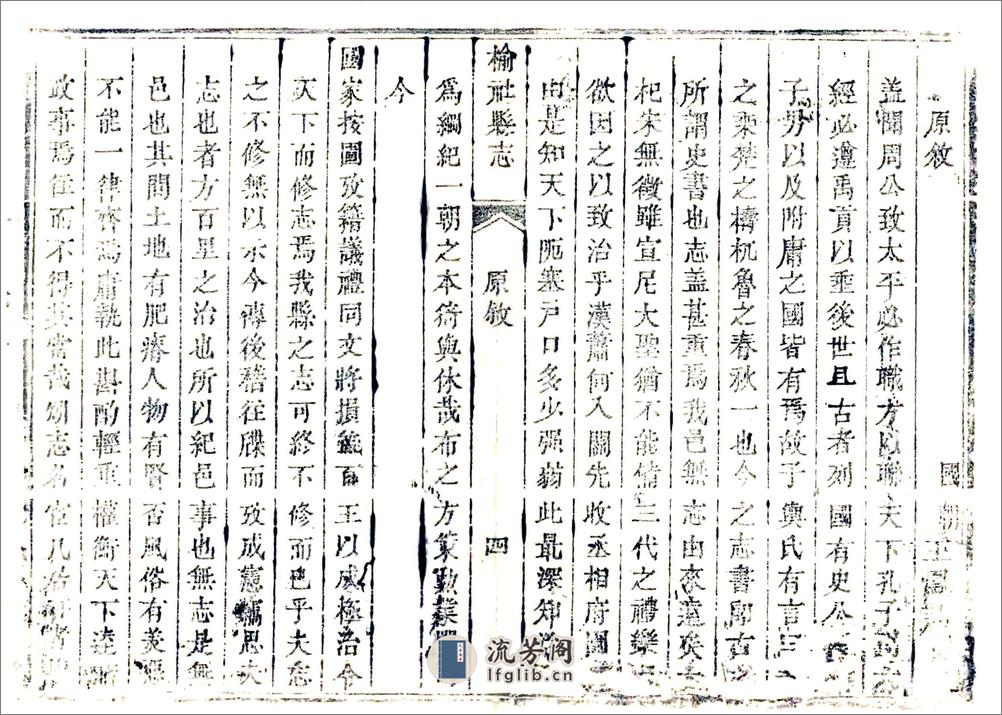 原敘
國朝
蓋聞周公致太平必作職方以聯天下孔子
經必遵禹貢以垂後世且古者列國有史公
子男以及附庸之國皆有焉故子輿氏有言曰
之乘楚之檮杌魯之春秋一也今之志書卽古之
所謂史書也志蓋甚重焉我邑無志由來遠矣
杞宋無徵雖宣尼大聖猶不能備三代之禮樂
欲因之以致治乎漢蕭何入關先收丞相府圖
由是知天下阨塞戶口多少强弱此最深知
榆社縣志 原敘 四
爲綱紀一朝之本猗與休哉布之方策勒
今
國家按圖攷籍議禮同文將損益百王以成極治令
天下而修志焉我縣之志可終不修而已乎夫志
之不修無以示今傳後稽往牒而攷成憲竊思夫
志也者方百里之治也所以紀邑事也無志是無
邑也其間土地有肥瘠人物有賢否風俗有美惡
不能一律齊焉庸執此斟酌輕重權衡天下達
政事焉往而不得其當哉頌志名宦
流芳阁
lfglib.cn